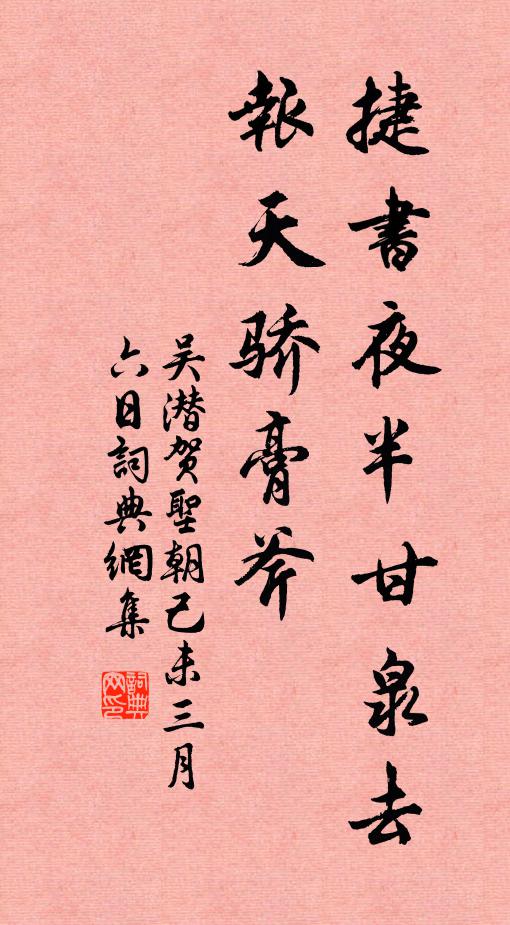 捷書夜半甘泉去
報天骄膏斧
吴潜贺聖朝己未三月
六日詞典網集
詞典
网印